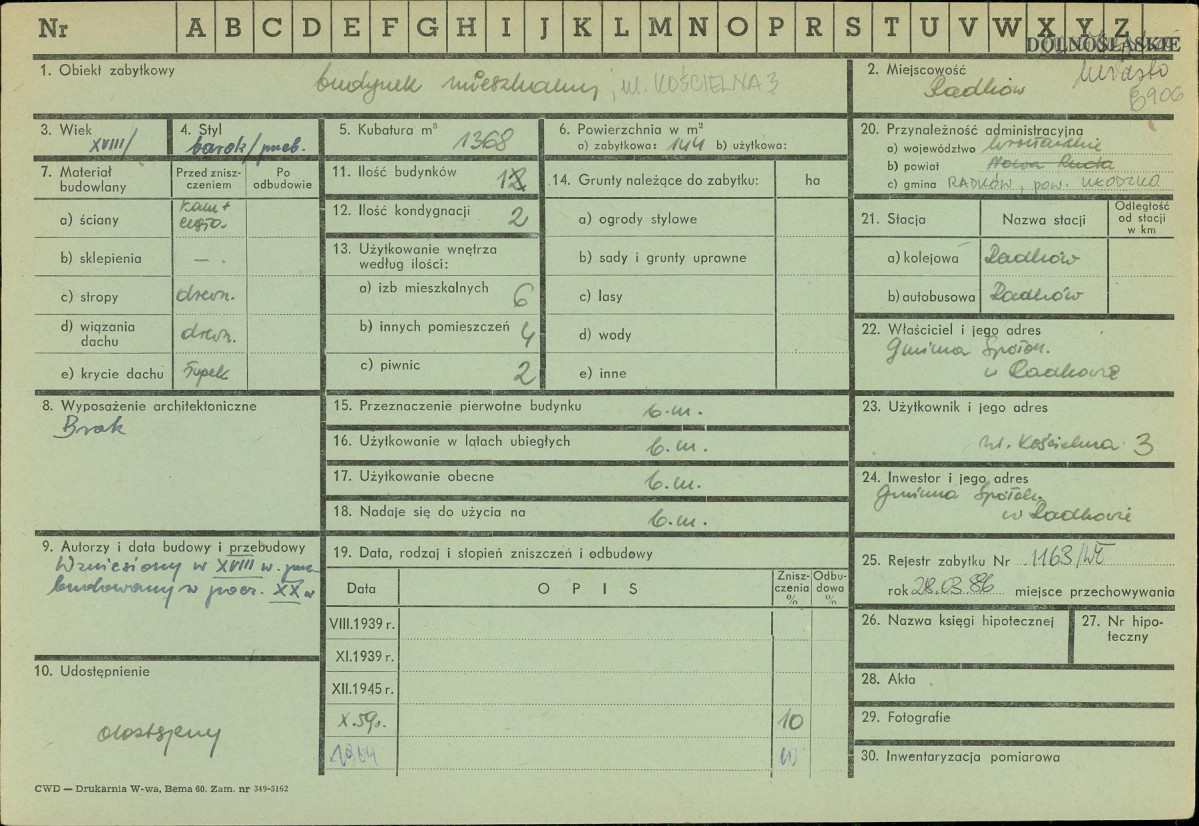 Nr A B C D E F G H I J K L M N O P R S T U V W X Y Z
DOLNOŚLĄSKIE
1. Obiekt zabytkowy
budynek mieszkalny, ul. KOŚCIELNA 3
2. Miejscowość
Radków
miasto
5906
3. Wiek
XVIII/
4. Styl
barok/przeb.
5. Kubatura m³
1368
6. Powierzchnia w m²
a) zabytkowa: 144 b) użytkowa:
7. Materiał budowlany
Przed znisz-
czeniem
Po
odbudowie
a) ściany
kam +
cegła.
b) sklepienia — .
c) stropy drewn.
d) wiązania
dachu drewn.
e) krycie dachu łupek
8. Wyposażenie architektoniczne
Brak
9. Autorzy i data budowy i przebudowy
Wzniesiony w XVIII w. prze
budowany w pocz. XX w
10. Udostępnienie
dostępny
11. Ilość budynków 1
12. Ilość kondygnacji 2
13. Użytkowanie wnętrza
według ilości:
a) izb mieszkalnych 6
b) innych pomieszczeń 4
c) piwnic 2
14. Grunty należące do zabytku: ha
a) ogrody stylowe
b) sady i grunty uprawne
c) lasy
d) wody
e) inne
15. Przeznaczenie pierwotne budynku b.m.
16. Użytkowanie w latach ubiegłych b.m.
17. Użytkowanie obecne b.m.
18. Nadaje się do użycia na b.m.
19. Data, rodzaj i stopień zniszczeń i odbudowy
Data
O P I S
Znisz-
czenia
%
Odbu-
dowa
%
VIII.1939 r.
XI.1939 r.
XII.1945 r.
X.59r. 10
1964
20. Przynależność administracyjna
a) województwo wrocławskie
b) powiat Nowa Ruda
c) gmina RADKÓW, pow. KŁODZKO
21. Stacja
Nazwa stacji
Odległość
od stacji
w km
a) kolejowa Radków
b) autobusowa Radków
22. Właściciel i jego adres
Gminna Spółdz.
w Radkowie
23. Użytkownik i jego adres
ul. Kościelna 3
24. Inwestor i jego adres
Gminna Spółdz.
w Radkowie
25. Rejestr zabytku Nr 1163/Wł
rok 28.03.86 miejsce przechowywania
26. Nazwa księgi hipotecznej
27. Nr hipo-
teczny
28. Akta
29. Fotografie
30. Inwentaryzacja pomiarowa
CWD — Drukarnia W-wa, Bema 60. Zam. nr 349-5162